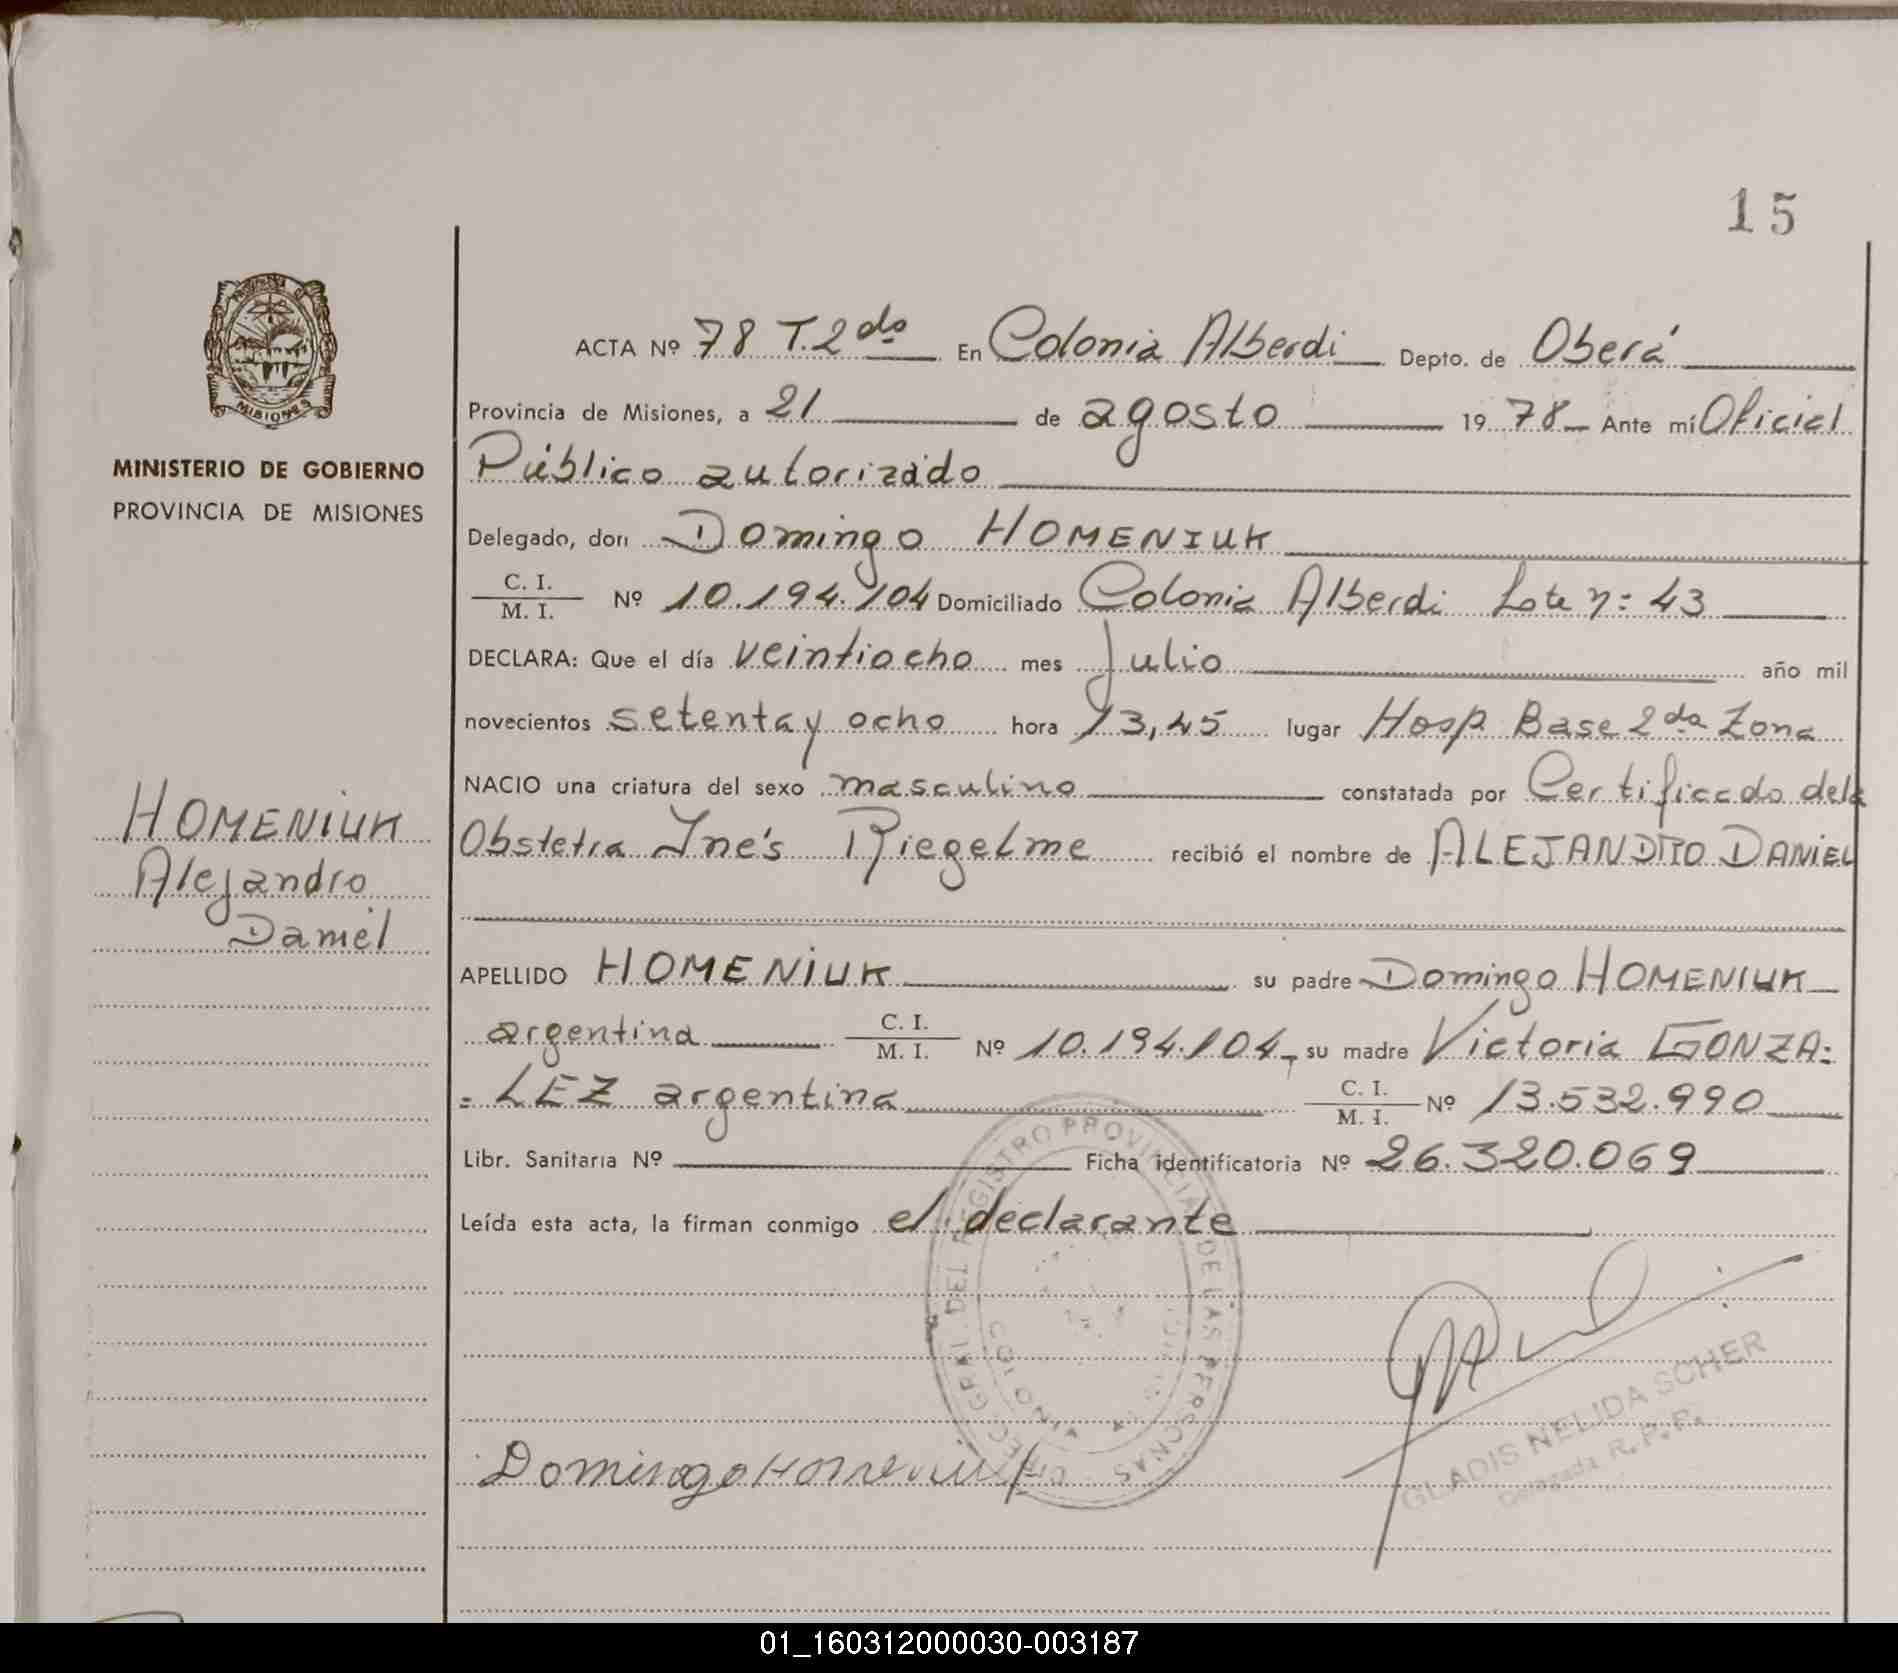 15
MISIONES
MINISTERIO DE GOBIERNO
PROVINCIA DE MISIONES
HOMENIUK
Alejandro
Daniel
ACTA Nº 78 T.2do En Colonia Alberdi Depto. de Oberá
Provincia de Misiones, a 21 de agosto 1978 Ante mí Oficial
Público autorizado
Delegado, don Domingo HOMENIUK
C. I.
M. I. Nº 10.194.104 Domiciliado Colonia Alberdi Lote n: 43
DECLARA: Que el día veintiocho mes Julio año mil
novecientos setenta y ocho hora 13,45 lugar Hosp. Base 2da Zona
NACIO una criatura del sexo masculino constatada por Certificado de la
Obstetra Ines Riegelme recibió el nombre de ALEJANDRO DANIEL
APELLIDO HOMENIUK su padre Domingo HOMENIUK
argentina C. I.
M. I. Nº 10.194.104, su madre Victoria GONZA=
=LEZ argentina C. I.
M. I. Nº 13.532.990
Libr. Sanitaria Nº Ficha identificatoria Nº 26.320.069
Leída esta acta, la firman conmigo el declarante
GRAL. DEL REGISTRO PROVINCIAL DE LAS PERSONAS
Domingo Homeniuk
GLADIS NELIDA SCHER
Delegada R. P. P.
01_160312000030-003187